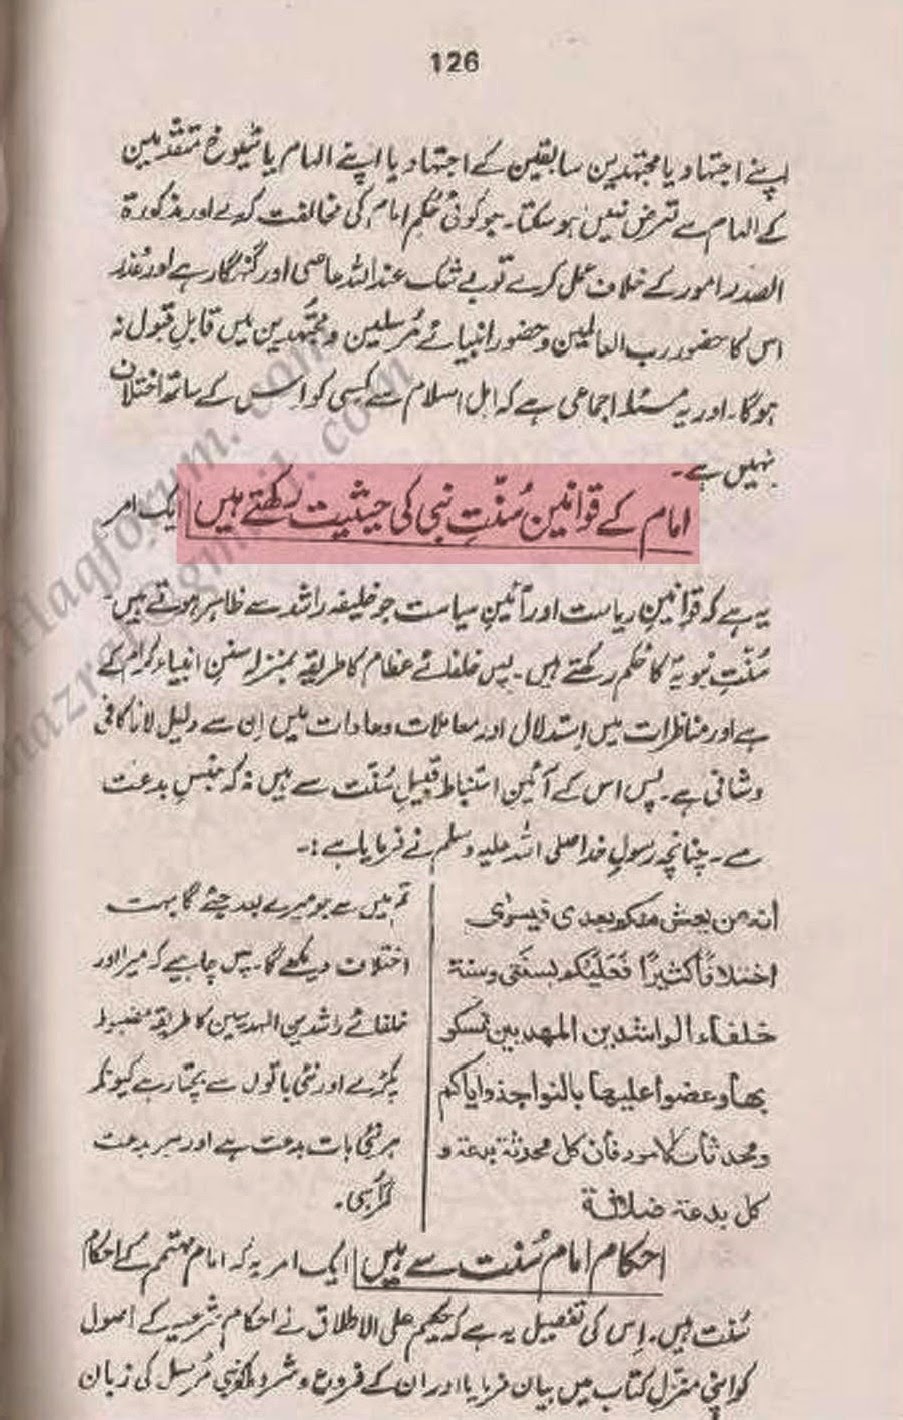 126
اپنے اجتہاد یا مجتہدین سابقین کے اجتہاد یا اپنے الہام یا شیوخ متقدمین
کے الہام سے تعرض نہیں ہو سکتا۔ جو کوئی حکم امام کی مخالفت کرے اور مذکورۃ
الصدر امور کے خلاف عمل کرے تو بے شک عند اللہ عاصی اور گنہگار ہے اور عذر
اس کا حضور رب العالمین و حضور انبیائے مرسلین و مجتہدین میں قابلِ قبول نہ
ہوگا۔ اور یہ مسئلہ اجماعی ہے کہ اہل اسلام سے کسی کو اس کے ساتھ اختلاف
نہیں ہے۔
امام کے قوانین سُنّتِ نبی کی حیثیت رکھتے ہیں ایک امر
یہ ہے کہ قوانینِ ریاست اور آئینِ سیاست جو خلیفہ راشد سے ظاہر ہوتے ہیں۔
سُنّتِ نبویہ کا حکم رکھتے ہیں۔ پس خلفائے عظام کا طریقہ بمنزلہ سنن انبیاء کرام کے
ہے اور مناظرات میں استدلال اور معاملات و عادات میں اِن سے دلیل لانا کافی
و شافی ہے۔ پس اس کے آئین استنباط قبیلِ سُنّت سے ہیں نہ کہ جنس بدعت
سے۔ چنانچہ رسولِ خدا صلی اللہ علیہ وسلم نے فرمایا ہے:۔
انہ من یعش منکم بعدی فیسرٰی
اختلافاً کثیرًا فعلیکم بسنتی وسنۃ
خلفاء الراشدین المهدیین تمسکو
بها وعضوا علیها بالنواجذ وایاکم
ومحدثات الامور فان کل محدثۃ بدعۃ و
کل بدعۃ ضلالۃ
تم میں سے جو میرے بعد جئے گا بہت
اختلاف دیکھے گا۔ پس چاہیے کہ میرا اور
خلفائے راشدین المہدیین کا طریقہ مضبوط
پکڑے اور نئی باتوں سے بچتا رہے کیونکہ
ہر نئی بات بدعت ہے اور ہر بدعت
گمراہی۔
احکام امام سُنّت سے ہیں ایک امر یہ کہ امام مہتمم کے احکام
سُنّت ہیں۔ اِس کی تفصیل یہ ہے کہ حکیم علی الاطلاق نے احکام شرعیہ کے اصول
کو اپنی منزل کتاب میں بیان فرمایا اور ان کے فروع و شروط کو نبی مُرسل کی زبان
Haqforum.com
@gmail.com